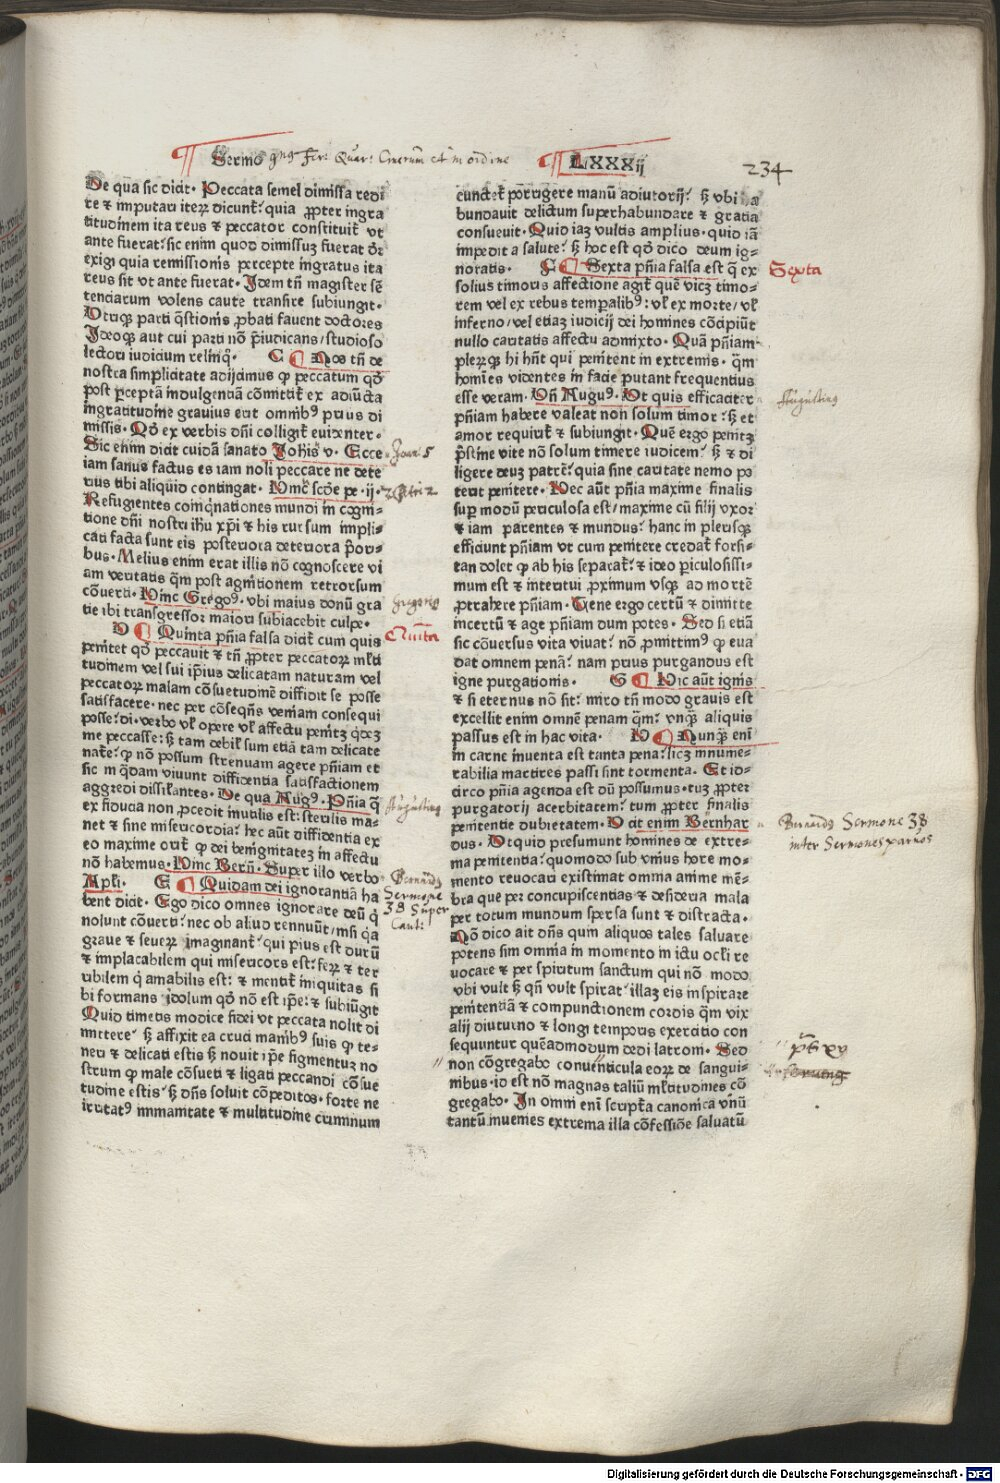 Sermo
LXXXij
234
De qua sic dicit. Peccata semel dimissa redi
re ⁊ imputari iteꝝ dicunt̃: quia ꝓpter ingra
titudinem ita reus ⁊ peccator constituit̃ vt
ante fuerat: sic enim quod dimissuꝫ fuerat dr̃
exigi quia remissionis percepte ingratus ita
reus fit vt ante fuerat. Idem tñ magister sē
tenciarum volens caute transire subiungit.
Vtriqꝫ parti q̃stionis ꝓbati fauent doctores
Ideoqꝫ aut cui parti nō p̃iudicans/studioso
lectori iudicium relinq̃. C Nos tñ de
nostra simplicitate adijcimus ꝙ peccatum qď
post ꝑceptā indulgentiā cōmittit̃ ex adiūcta
ingratitudine grauius erit omnibꝰ prius di
missis. Qď ex verbis dñi colligit̃ euidenter.
Sic enim dicit cuidā sanato Johis v. Ecce
iam sanus factus es iam noli peccare ne dete
rius tibi aliquid contingat. Hinc̃ scďe pe.ij.
Refugientes coinq̃nationes mundi in cogni
tione dñi nostri ihu xp̃i ⁊ his rursum impli
cati facta sunt eis posteriora deteriora p̃ori
bus. Melius enim erat illis nō cognoscere vi
am veritatis q̃m post agnitionem retrorsum
cōuerti. Hinc Gregoꝰ. vbi maius donū gra
tie ibi transgressor maiori subiacebit culpe.
D Quinta pñia falsa dicit̃ cum quis
penitet qď peccauit ⁊ tñ ꝓpter peccatoꝝ ml̃ti
tudinem vel sui ip̃ius delicatam naturam vel
peccatoꝝ malam cōsuetudinē diffidit se posse
satisfacere. nec per cōseq̃ns veniam consequi
posse: di. verbo vl̃ opere vl̃ affectu penitꝫ
me peccasse: sꝫ tam debilis sum etiā tam delicate
nat̃e: ꝙ nō possum strenuam agere pñiam et
sic in q̃dam viuunt diffidentia satisfactionem
aggredi dissilantes. De qua Augꝰ. Pñia q̃
ex fiducia non ꝓcedit inutilis est: sterilis ma
net ⁊ sine misericordia: hec aūt diffidentia ex
eo maxime orit̃ ꝙ dei benignitateꝫ in affectu
nō habemus. Hinc Berñ. Super illo verbo
Apl̃i. E Quidam dei ignorantiā ha
bent dicit. Ego dico omnes ignorare deū q̃
nolunt cōuerti: nec ob aliud rennuūt/nisi q̃a
graue ⁊ seueꝝ imaginant̃ qui pius est durū
⁊ implacabilem qui misericors est: feꝝ ⁊ ter
ribilem q̃ amabilis est: ⁊ mentit̃ iniquitas si
bi formans idolum qď nō est ip̃e: ⁊ subiūgit
Quid timetis modice fidei vt peccata nolit di
mittere: sꝫ affixit ea cruci manibꝰ suis ꝙ te
neri ⁊ delicati estis sꝫ nouit ip̃e figmentuꝫ no
strum ꝙ male cōsueti ⁊ ligati peccandi cōsue
tudine estis: sꝫ dñs soluit cōpeditos. forte ne
irritatꝰ immanitate ⁊ multitudine criminum
cunctet̃ porrigere manū adiutorij: sꝫ vbi a
bundauit delictum superhabundare ⁊ gratia
consueuit. Quid iaꝫ vultis amplius. quid iā
impedit a salute: sꝫ hoc est qď dico deum ig
noratis. F Sexta pñia falsa est q̃ ex
solius timoris affectione agit̃ quē vicꝫ timo
rem vel ex rebus temꝑalibꝰ: vl̃ ex morte/vl̃
inferno/vel etiaꝫ iudicij dei homines cōcipiūt
nullo caritatis affectu admixto. Quā pñiam
pleꝝqꝫ hi hñt qui penitent in extremis. q̃m
homies videntes in facie putant frequentius
esse veram. Vñ Auguꝰ. Vt quis efficaciter
pñiam habere valeat non solum timor: sꝫ et
amor requirit̃ ⁊ subiungit. Quē ergo penitꝫ
p̃stine vite nō solum timere iudicem: sꝫ ⁊ di
ligere deuꝫ patrē: quia sine caritate nemo po
terit penitere. Nec aūt pñia maxime finalis
suꝑ modū periculosa est/maxime cū filij vxor
⁊ iam parentes ⁊ mundus: hanc in plerisqꝫ
efficiunt pñiam vt cum penitere credat̃ forsi
tan dolet ꝙ ab his separat̃: ⁊ ideo ꝑiculosissi
mum est ⁊ interitui ꝓximum vsqꝫ ad mortē
ꝓtrahere pñiam. Tene ergo certū ⁊ dimitte
incertū ⁊ age pñiam dum potes. Sed si etiā
sic cōuersus vita viuat: nō ꝓmittimꝰ ꝙ eua
dat omnem penā: nam prius purgandus est
igne purgationis. G Hic aūt ignis
⁊ si eternus nō sit: miro tñ modo grauis est
excellit enim omnē penam q̃m: vnqꝫ aliquis
passus est in hac vita. H Nunqꝫ eni
in carne inuenta est tanta pena: licꝫ innume
rabilia martires passi sint tormenta. Et id
circo pñia agenda est dū possumus. tuꝫ ꝓpter
purgatorij acerbitatem: tum ꝓpter finalis
penitentie dubietatem. Dicit enim Bernhar
dus. Vtquid presumunt homines de extre
ma penitentia: quomodo sub vnius hore mo
mento reuocari existimat omnia anime mē
bra que per concupiscentias ⁊ desideria mala
per totum mundum sꝑsa sunt ⁊ distracta.
Nō dico ait dñs quin aliquos tales saluare
potens sim omnia in momento in ictu ocl̃i re
uocare ⁊ per spiritum sanctum qui nō modo
vbi vult sꝫ qñ vult spirat: illaꝫ eis inspirare
penitentiā ⁊ compunctionem cordis quim vix
alij diuturno ⁊ longi temporis exercitio con
sequuntur queādmodum dedi latroni. Sed
non cōgregabo conuenticula eoꝝ de sangui
nibus. id est nō magnas taliū ml̃titudines cō
gregabo. In omni enī scripta canonica vnū
tantū inuenies extrema illa cōfessiōe saluatū
Joan 5
2 Petri 2
Gregorius
Quinta
Augustinus
Bernardus
Sermone
38 Super
Cant:
Sexta
Augustinus
Bernardus Sermone 38
inter Sermones paruos
Digitalisierung gefördert durch die Deutsche Forschungsgemeinschaft - DFG